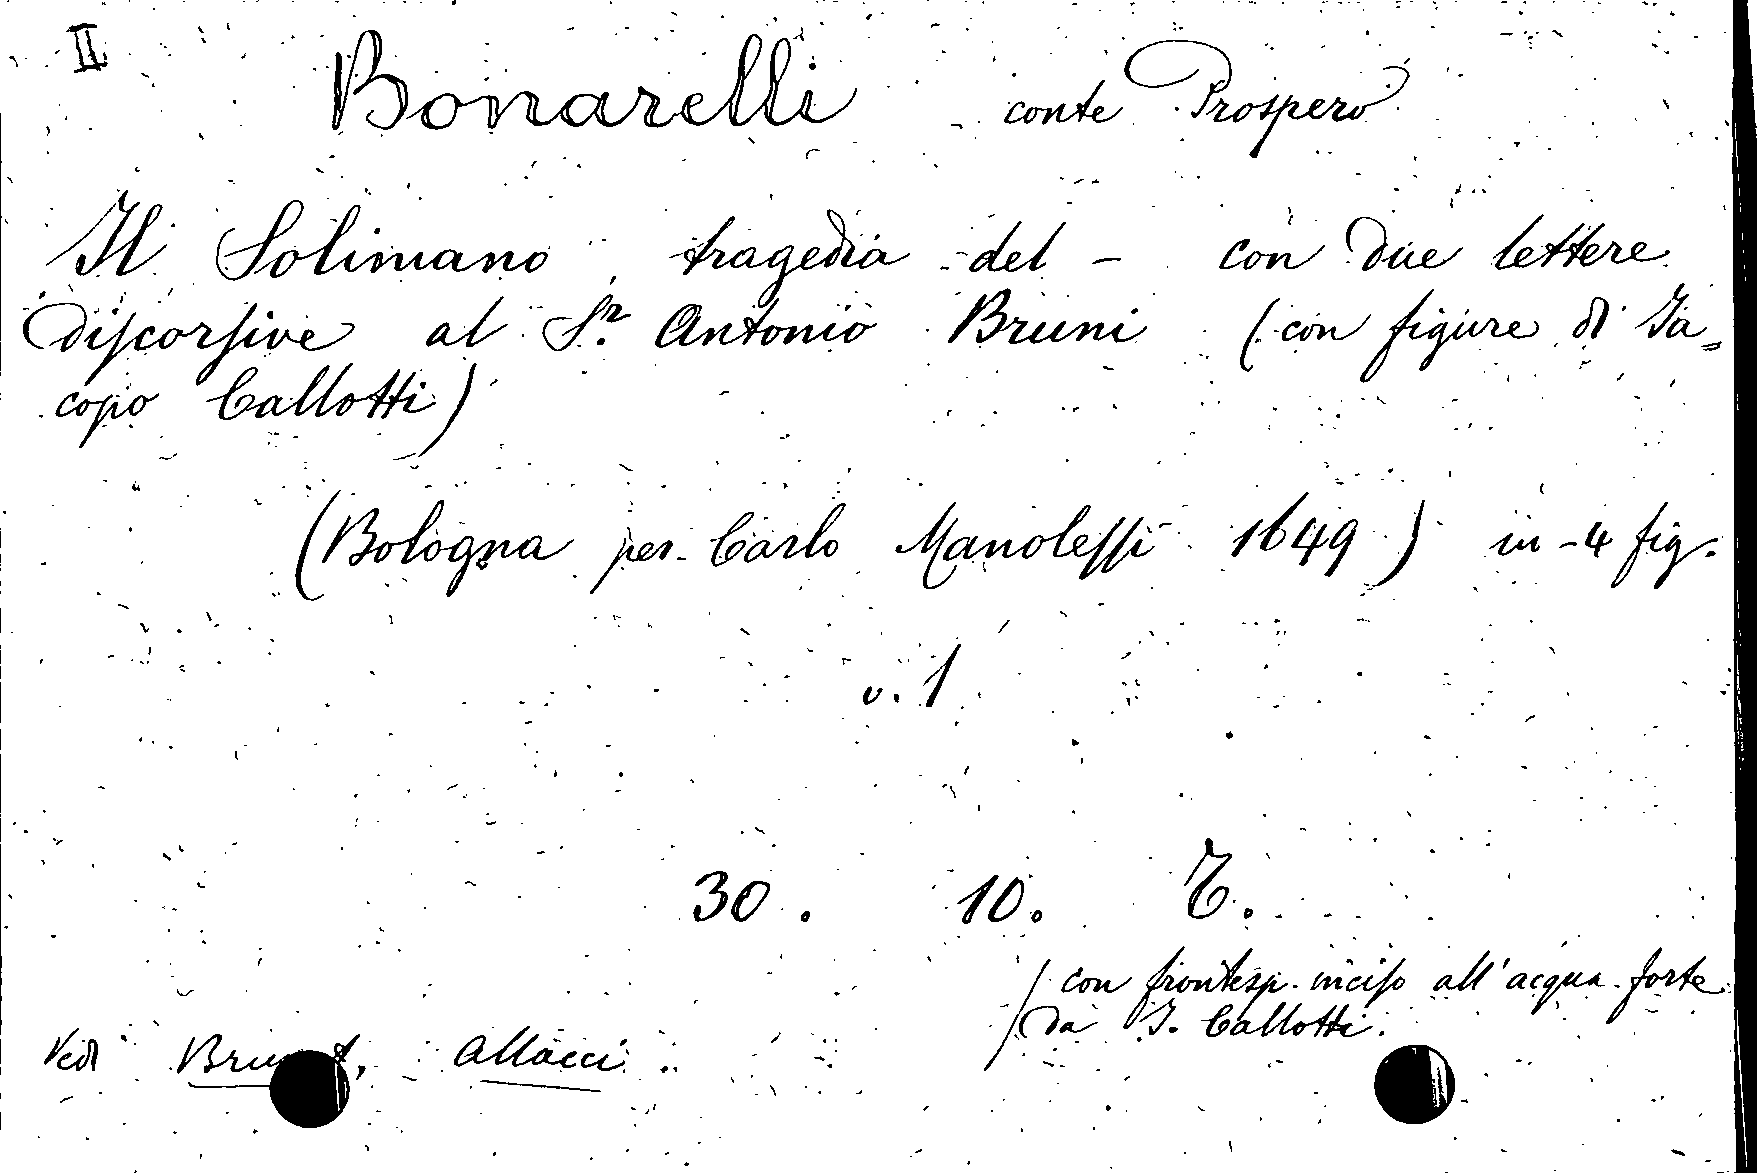 II
Bonarelli conte Prospero
Il Solimano tragedia del - con due lettere
discorsive al Sr. Antonio Bruni (con figure di Ja=
copo Callotti)
(Bologna per Carlo Manolessi 1649) in-4 fig.
v. 1
30. 10. T.
con frontesp. inciso all'acqua forte
da J. Callotti.
Vedi Allacci.